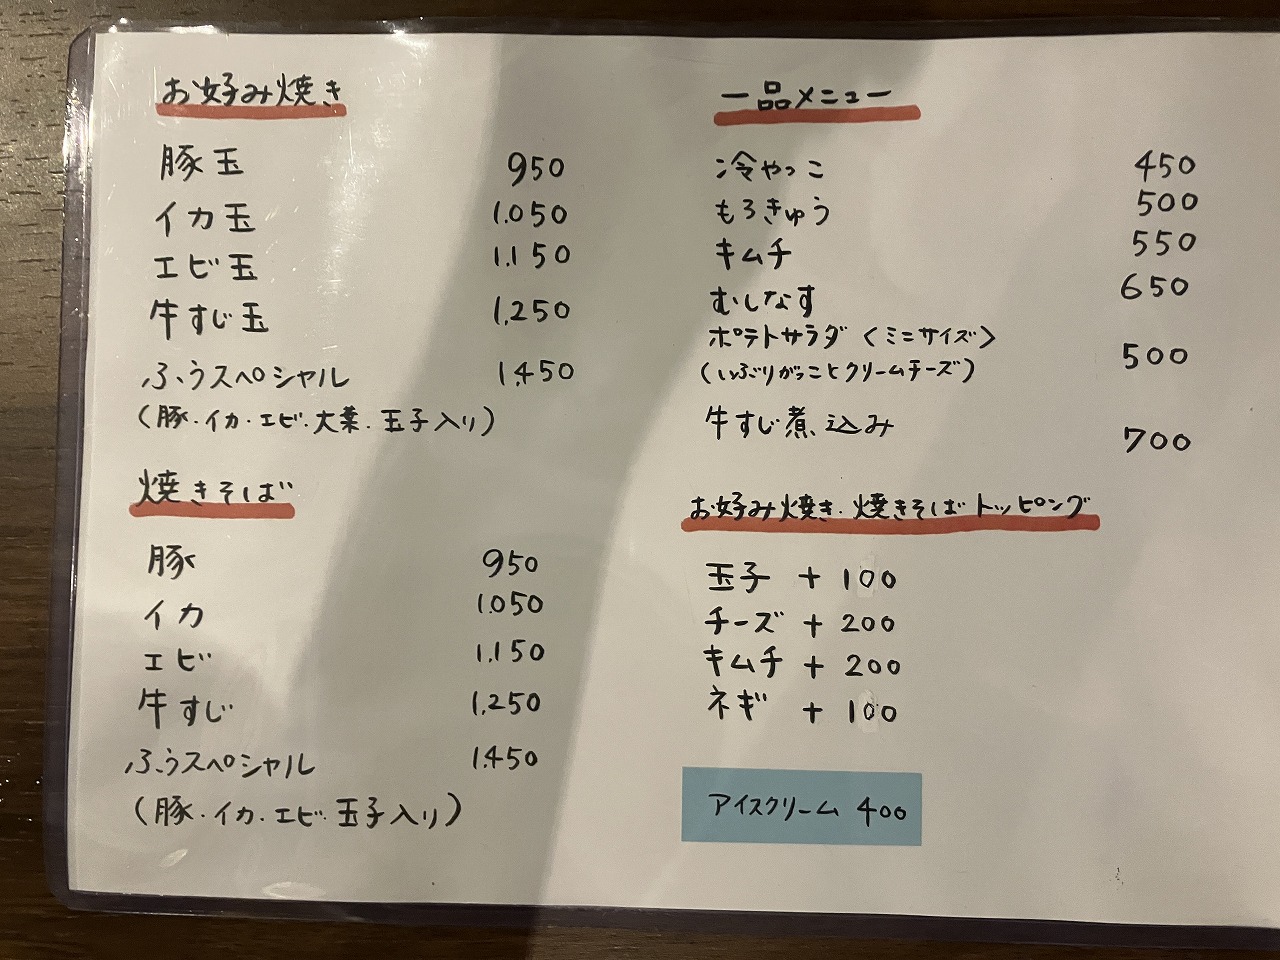 お好み焼き
豚玉 950
イカ玉 1.050
エビ玉 1.150
牛すじ玉 1,250
ふうスペシャル 1,450
(豚.イカ.エビ.大葉.玉子入り)
焼きそば
豚 950
イカ 1.050
エビ 1.150
牛すじ 1,250
ふうスペシャル 1,450
(豚.イカ.エビ.玉子入り)
一品メニュー
冷やっこ 450
もろきゅう 500
キムチ 550
むしなす 650
ポテトサラダ〈ミニサイズ〉
(いぶりがっことクリームチーズ) 500
牛すじ煮込み 700
お好み焼き.焼きそばトッピング
玉子 + 100
チーズ + 200
キムチ + 200
ネギ + 100
アイスクリーム 400